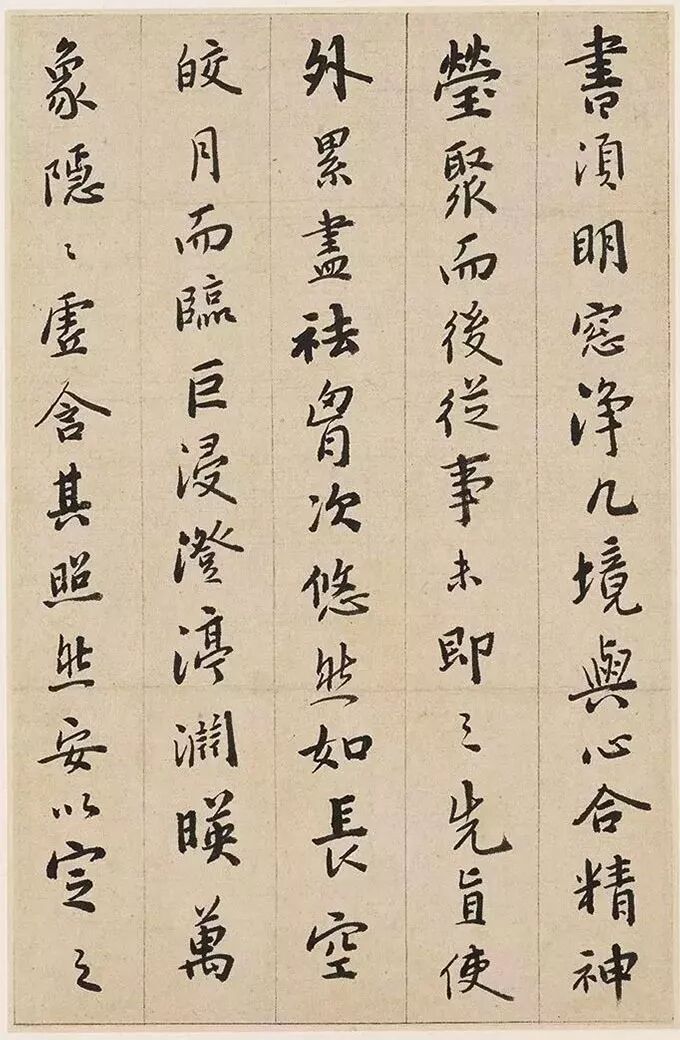 書湏明窓浄几境與心合精神
瑩聚而後從事未即之先冝使
外累盡袪胷次悠然如長空
皎月而臨巨浸澄渟澗暎萬
象隱〻虛含其照然安以定之